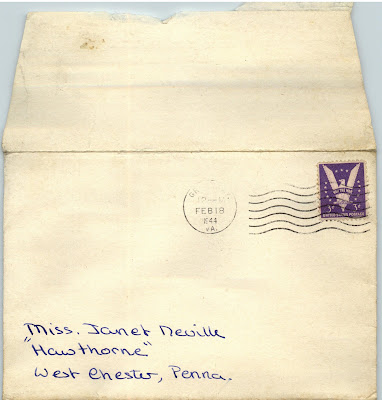 FEB 18
1944
VA.
3¢ 3¢
UNITED STATES POSTAGE
Miss. Janet Neville
"Hawthorne"
West Chester, Penna.